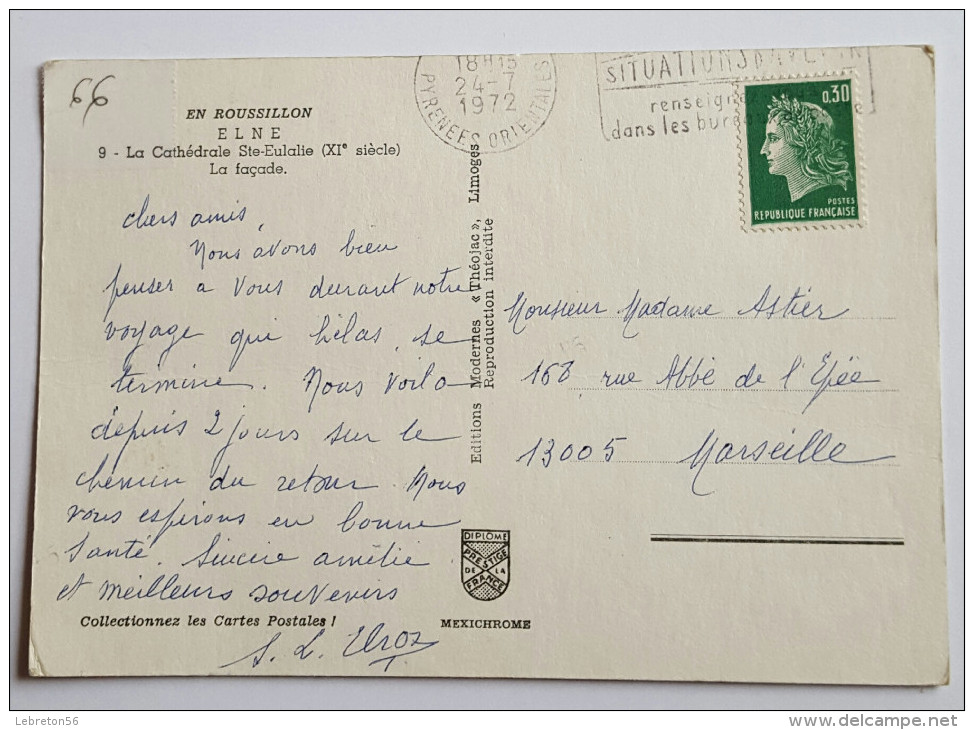 66
EN ROUSSILLON
ELNE
9 - La Cathédrale Ste-Eulalie (XIe siècle)
La façade.
18H15
24-7
1972
PYRENEES ORIENTALES
SITUATIONS
renseign
dans les bureaux
0,30
POSTES
REPUBLIQUE FRANÇAISE
chers amis,
Nous avons bien
penser a vous durant notre
voyage qui hélas, se
termine. Nous voila
depuis 2 jours sur le
chemin du retour. Nous
vous espérons en bonne
Santé. Sincère amitié
et meilleurs souvenirs
S. L.
Editions Modernes « Théojac », Limoges
Reproduction interdite
Monsieur Madame Astier
168 rue Abbé de l'Epée
13005 Marseille
DIPLOME
PRESTIGE
DE LA
FRANCE
Collectionnez les Cartes Postales !
MEXICHROME
Lebreton56
delcampe.net